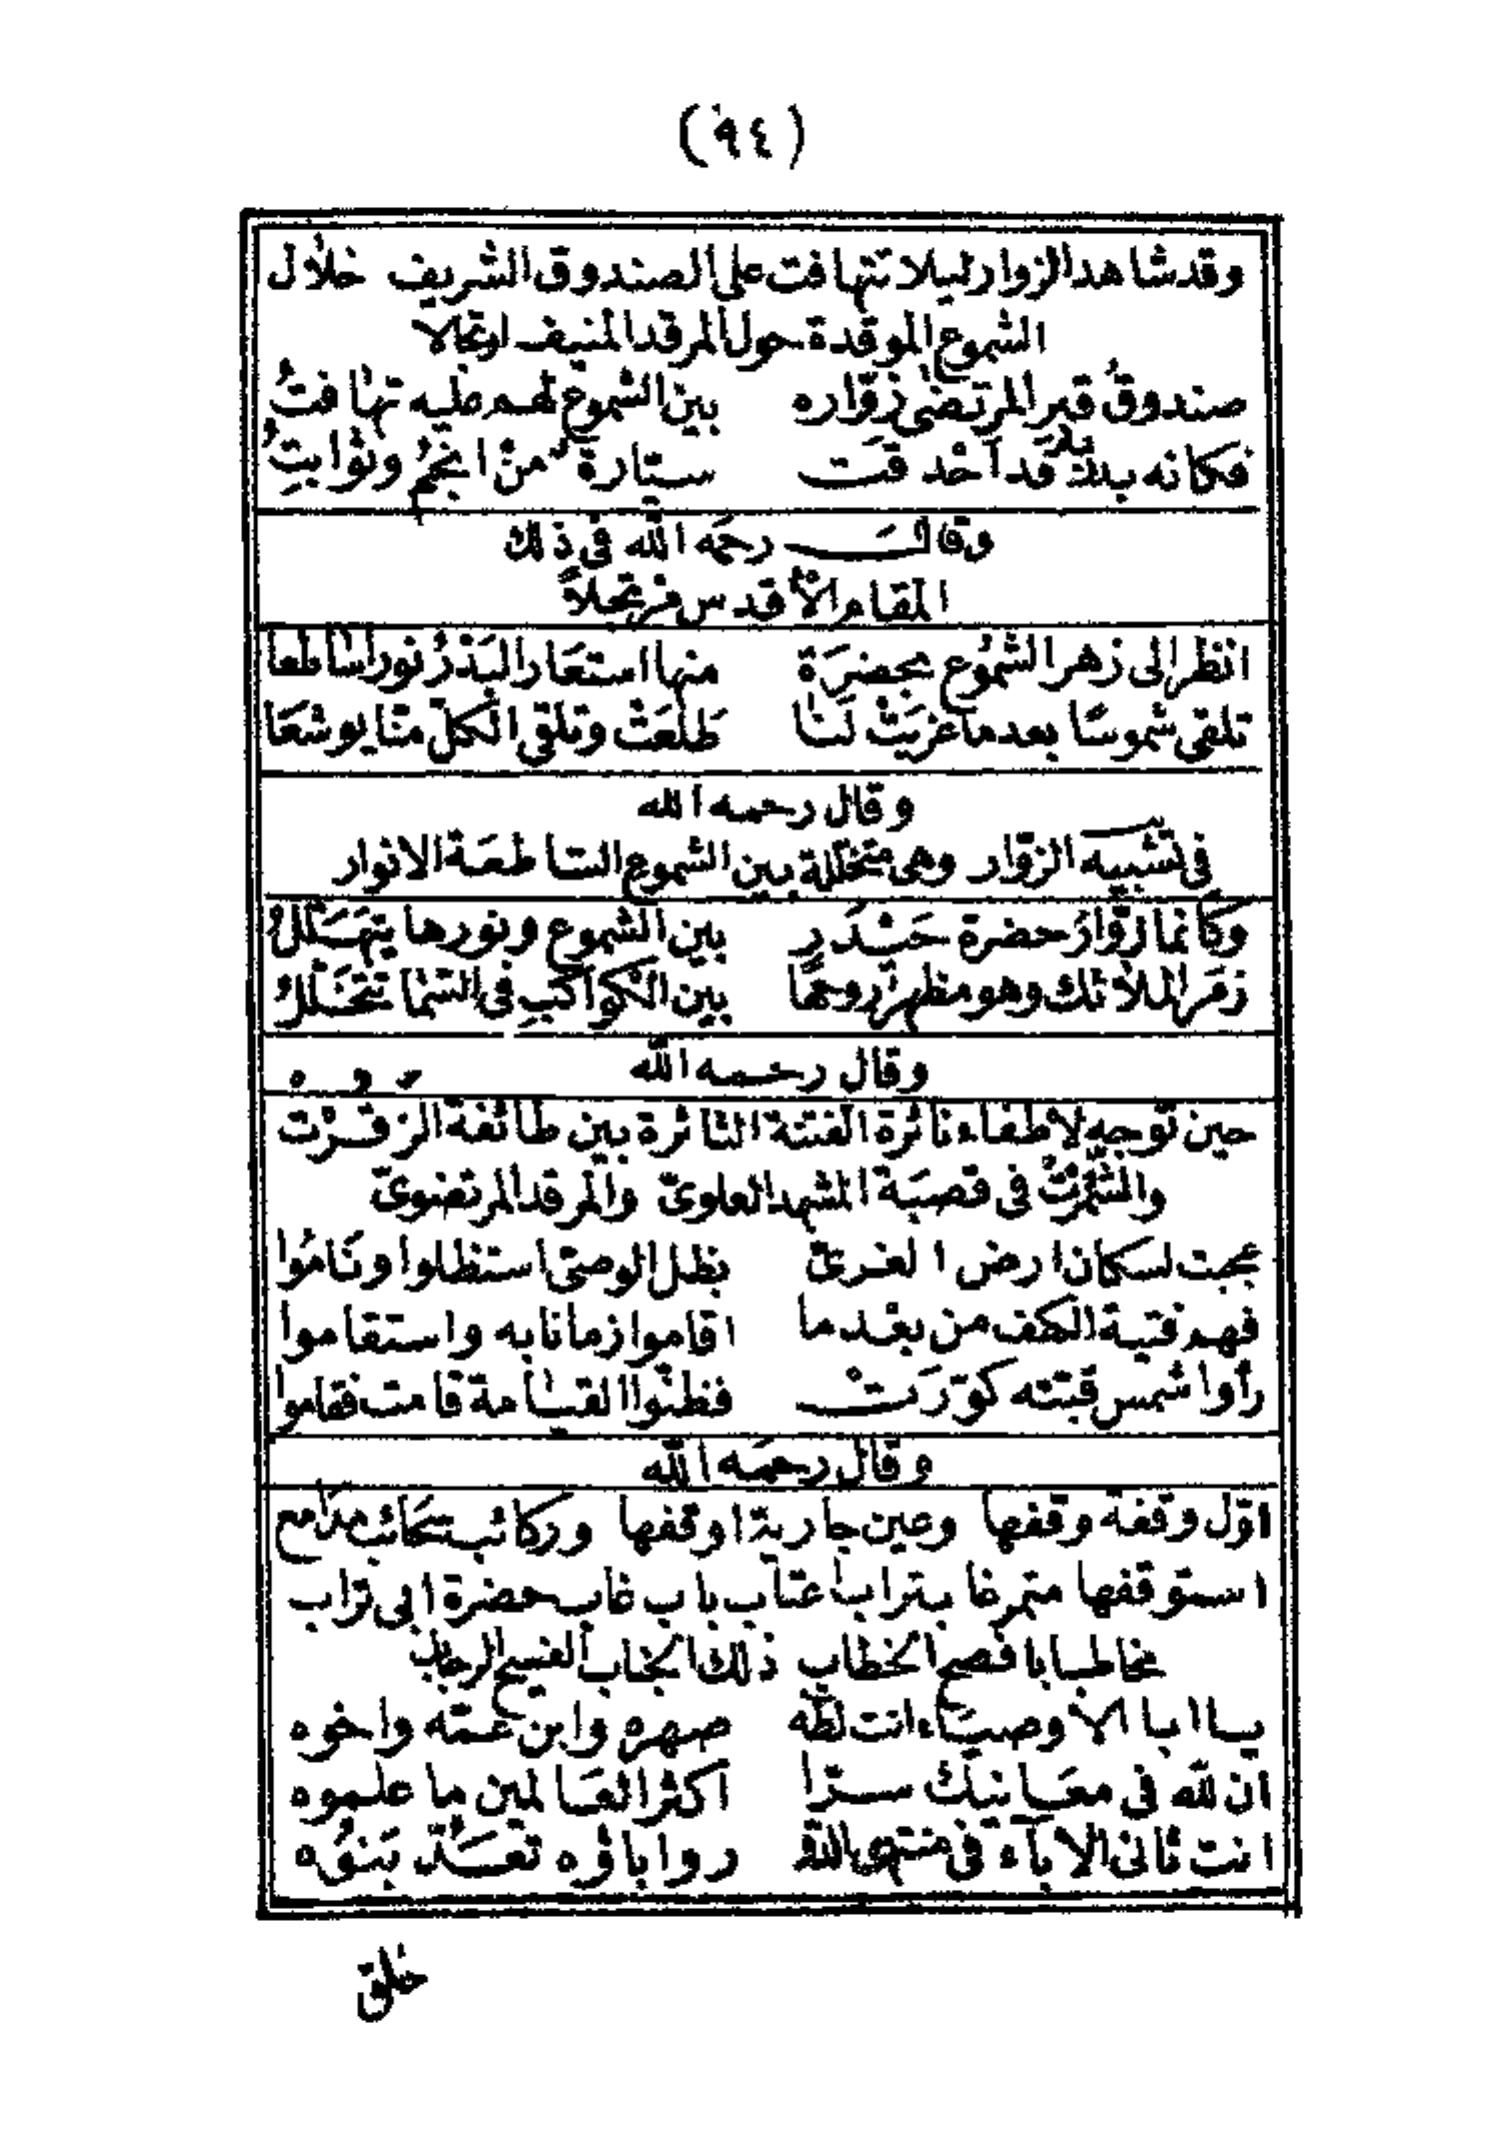 (٩٤)
وقد شاهد الزوار ليلا تتهافت على الصندوق الشريف خلال
الشموع الموقدة حول المرقد المنيف ارتجالا
صندوقُ قبر المرتضى زوّاره بين الشموع لهم عليه تهافتُ
فكانه بدر قد احْدقَت سيّارة من انجمٍ وثوابتِ
وقالَ رحمَه الله فى ذلك
المقام الأقدس مرتجلاً
انظر الى زهر الشمُوع بحضرَة منها استعَار البَدْرُ نورا ساطعا
تلقى شموسًا بعدما غربَتْ لنَا طَلعَتْ وتلقى الكلّ منّا يوشعَا
وقال رحمه الله
فى تشبيه الزوّار وهى متخللة بين الشموع السّاطعَة الانوار
وكأنما زوّارُ حضرة حَيْدَرٍ بين الشموع ونورها يتهَلّلُ
زمَر الملائك وهو مظهر روعها بين الكواكبِ فى السّما تتخلّلُ
وقال رحمه الله
حين توجه لاطفاء نائرة الفتنة الثائرة بين طائفة الزقرْت
والشّمرْتْ فى قصبَة المشهد العلوىّ والمرقد المرتضوىّ
عجبت لسكان ارض الغرىّ بظل الوصىّ استظلوا ونَامُوا
فهم فتية الكهف من بعْد ما اقاموا زمانا به واستقاموا
رأوا شمس قبّته كوّرَتْ فظنّوا القيامة قامت فقاموا
وقال رحمَه الله
اوّل وقفة وقفها وعين جارية اوقفها وركائب سَحَائب مدَامع
استوقفها متمرغا بتراب اعتاب باب غاب حضرة ابى تراب
مخاطبا بافصح الخطاب ذلك الجناب الفسيح الرحاب
يا ابا الاوصيَاء انت لطه صهره وابن عمّه واخوه
ان لله فى معَانيك سرّا اكثر العَالمين ما علموه
انت ثانى الآباء فى منتهى الدّور واباؤه تعَدّ بَنوُه
خلق